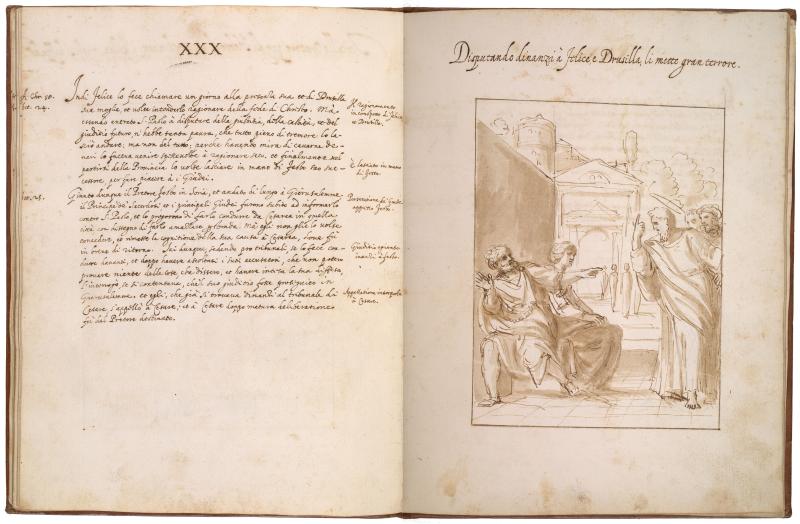 XXX
Indi Felice lo fece chiamare un giorno alla presenza sua et di Drusilla
sua moglie, et volse intenderlo ragionare della fede di Christo. Mà
essendo entrato S. Paolo à disputare della giustizia, della castità, et del
giudizio futuro, n'hebbe tanta paura, che tutto pieno di tremore lo la-
sciò andare; ma non del tutto; perche havendo mira di cavarne de-
nari lo faceva venire spesse volte à ragionare seco, et finalmente nel
partirsi della Provincia lo volse lasciare in mano di Festo suo suc-
cessore, per fare piacere à i Giudei.
Giunto dunque il Pretore Festo in Soria, et andato di lungo à Gierusalemme,
il Principe de' Sacerdoti et i principali Giudei furono subito ad informarlo
contro S. Paolo, et lo pregorono di farlo condurre da Cesarea in quella
città con disegno di farlo amazzare per strada. Mà egli non gli lo volse
concedere, et rimette la cognitione della sua causa à Cesarea, dove fù
in breve di ritorno. Qui dunque, sedendo pro tribunali, se lo fece con-
durre havanti, et doppo haveva ascoltati i suoi accusatori, che non potero
provare niente delle cose che dissero, et havere intesa la sua difesa,
l'interrogò, se si contentava, che il suo giudizio fosse proseguito in
Gierusalemme. et egli, che già si trovava dinanzi al tribunale di
Cesare, s'appellò à Cesare; et à Cesare doppo matura deliberatione
fù dal Pretore destinato.
Act. 24.
Act. 25.
Il ragionamento
in cospetto di Felice
e Drusilla.
È lasciato in mano
di Festo.
Persecutione de' Giudei
appresso Festo.
Giuditio
inanzi à Festo.
Appellatione interposta
à Cesare.
Disputando dinanzi à Felice e Drusilla, li mette gran terrore.